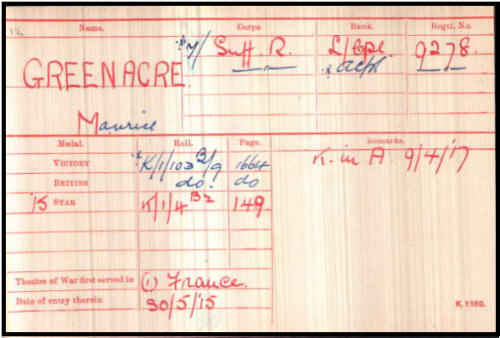 12.
Name. Corps. Rank. Regtl. No.
*7/ Suff. R. L/Cpl. 9278.
GREENACRE. * a/cpl —„—
Maurice
Medal. Roll. Page. Remarks.
VICTORY *K/1/103B2/9 1664 K. in A. 9/4/17
BRITISH do. do
'15 STAR K/1/4B2 149.
Theatre of War first served in (1) France.
Date of entry therein 30/5/15
K. 1380.